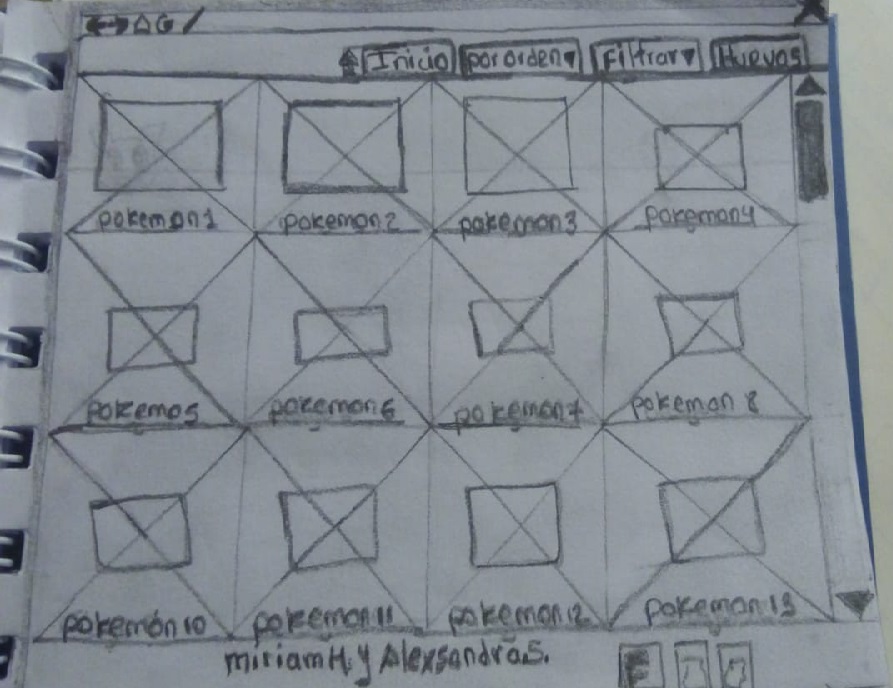 Inicio por orden▼ Filtrar▼ Huevos
pokemon1 pokemon2 pokemon3 pokemon4
pokemo5 pokemon6 pokemon7 pokemon 8
pokemón10 pokemon11 pokemon12 pokemon13
miriam H. y Alexsandra S.
F